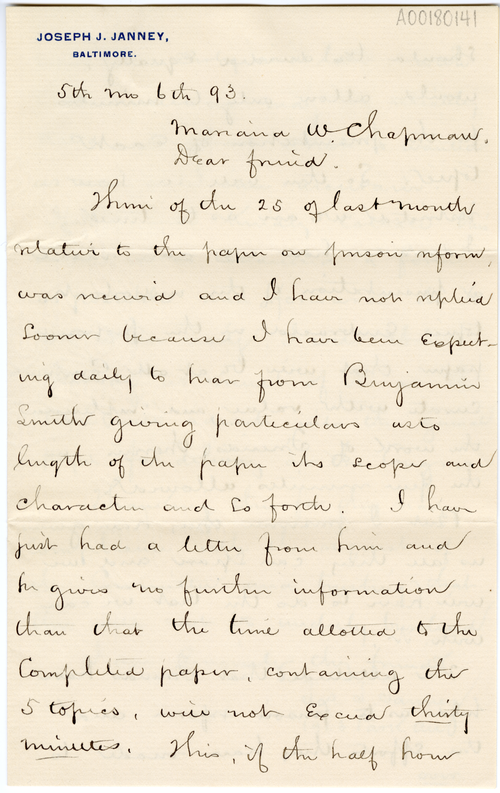 A00180141
JOSEPH J. JANNEY,
BALTIMORE.
5th mo 6th 93.
Mariana W. Chapman.
Dear friend.
Thine of the 25 of last month
relative to the paper on prison reform,
was received and I have not replied
sooner because I have been expect-
ing daily to hear from Benjamin
Smith giving particulars as to
length of the paper its scope and
character and so forth. I have
just had a letter from him and
he gives no further information
than that the time allotted to the
Completed paper, containing the
5 topics, will not exceed thirty
minutes. This, if the half hour